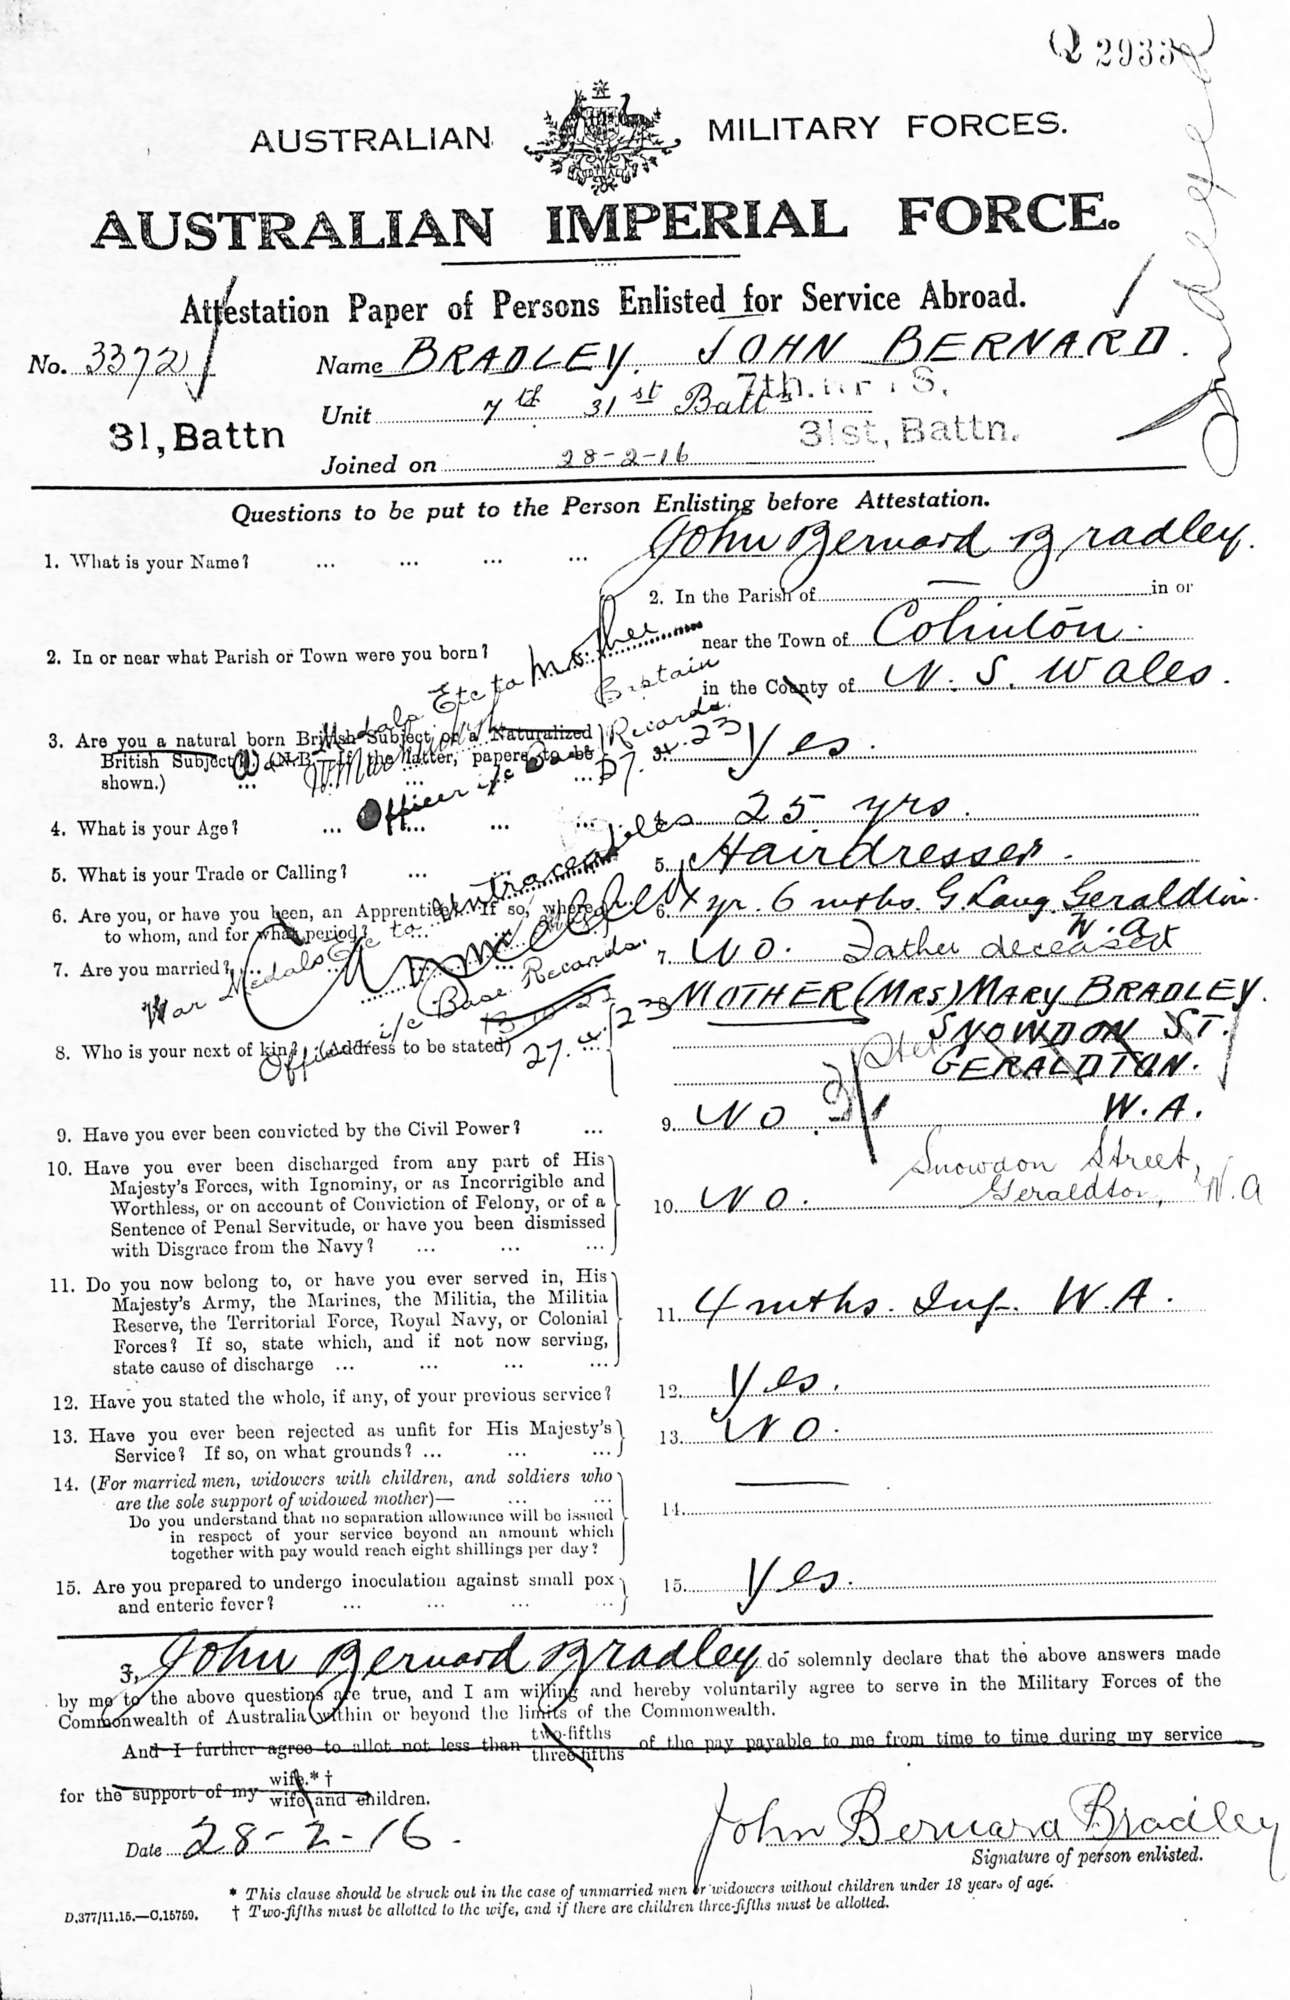 Q 2933
Indexed
AUSTRALIAN MILITARY FORCES.
AUSTRALIAN IMPERIAL FORCE.
Attestation Paper of Persons Enlisted for Service Abroad.
No. 3372 Name BRADLEY, JOHN BERNARD.
Unit 7th 31st Battn 7th. S.
31, Battn 31st, Battn.
Joined on 28-2-16
Questions to be put to the Person Enlisting before Attestation.
1. What is your Name? ... ... ... ... John Bernard Bradley.
2. In the Parish of — in or
2. In or near what Parish or Town were you born? near the Town of Colinton.
in the County of N. S. Wales.
3. Are you a natural born British Subject or a Naturalized
British Subject? (N.B.—If the latter, papers to be 3. Yes.
shown.) ... ... ... ...
4. What is your Age? ... ... ... ... 4. 25 yrs.
5. What is your Trade or Calling? ... ... 5. Hairdresser.
6. Are you, or have you been, an Apprentice? If so, where, 6. yr. 6 mths. G. Lang. Geraldton.
to whom, and for what period? ... ... W. A.
7. Are you married? ... ... ... 7. NO. Father deceased
MOTHER (MRS) MARY BRADLEY.
SNOWDON ST.
8. Who is your next of kin? (Address to be stated) ... Stet GERALDTON.
W.A.
Medals Etc to Mother
Captain
Officer i/c Base Records.
27.4.23
War Medals Etc to untraceable
Officer i/c Base Records.
13.10.22
27.4.23
9. Have you ever been convicted by the Civil Power? ... 9. NO.
Snowdon Street,
Geraldton, W.A
10. Have you ever been discharged from any part of His
Majesty's Forces, with Ignominy, or as Incorrigible and
Worthless, or on account of Conviction of Felony, or of a 10. NO.
Sentence of Penal Servitude, or have you been dismissed
with Disgrace from the Navy? ... ... ...
11. Do you now belong to, or have you ever served in, His
Majesty's Army, the Marines, the Militia, the Militia
Reserve, the Territorial Force, Royal Navy, or Colonial 11. 4 mths. Inf. W.A.
Forces? If so, state which, and if not now serving,
state cause of discharge ... ... ... ...
12. Have you stated the whole, if any, of your previous service? 12. Yes.
13. Have you ever been rejected as unfit for His Majesty's 13. NO.
Service? If so, on what grounds? ... ... ...
14. (For married men, widowers with children, and soldiers who
are the sole support of widowed mother)— ... ... 14. —
Do you understand that no separation allowance will be issued
in respect of your service beyond an amount which
together with pay would reach eight shillings per day?
15. Are you prepared to undergo inoculation against small pox 15. Yes.
and enteric fever? ... ... ... ...
I, John Bernard Bradley do solemnly declare that the above answers made
by me to the above questions are true, and I am willing and hereby voluntarily agree to serve in the Military Forces of the
Commonwealth of Australia within or beyond the limits of the Commonwealth.
And I further agree to allot not less than two-fifths three-fifths of the pay payable to me from time to time during my service
for the support of my wife.*† wife and children.
Date 28-2-16. John Bernard Bradley
Signature of person enlisted.
* This clause should be struck out in the case of unmarried men or widowers without children under 18 years of age.
D.377/11.15.—C.15759. † Two-fifths must be allotted to the wife, and if there are children three-fifths must be allotted.